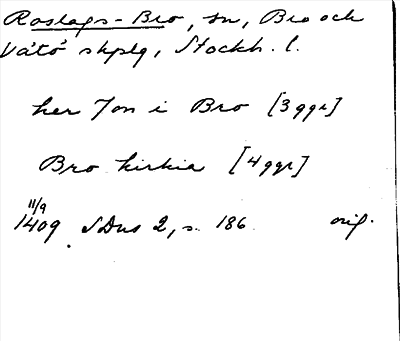 Roslags-Bro, sn, Bro och
Vätö skplg, Stockh. l.
her Jon i Bro [3 ggr]
Bro kirkia [4 ggr]
11/9
1409 SDns 2, s. 186 orig.